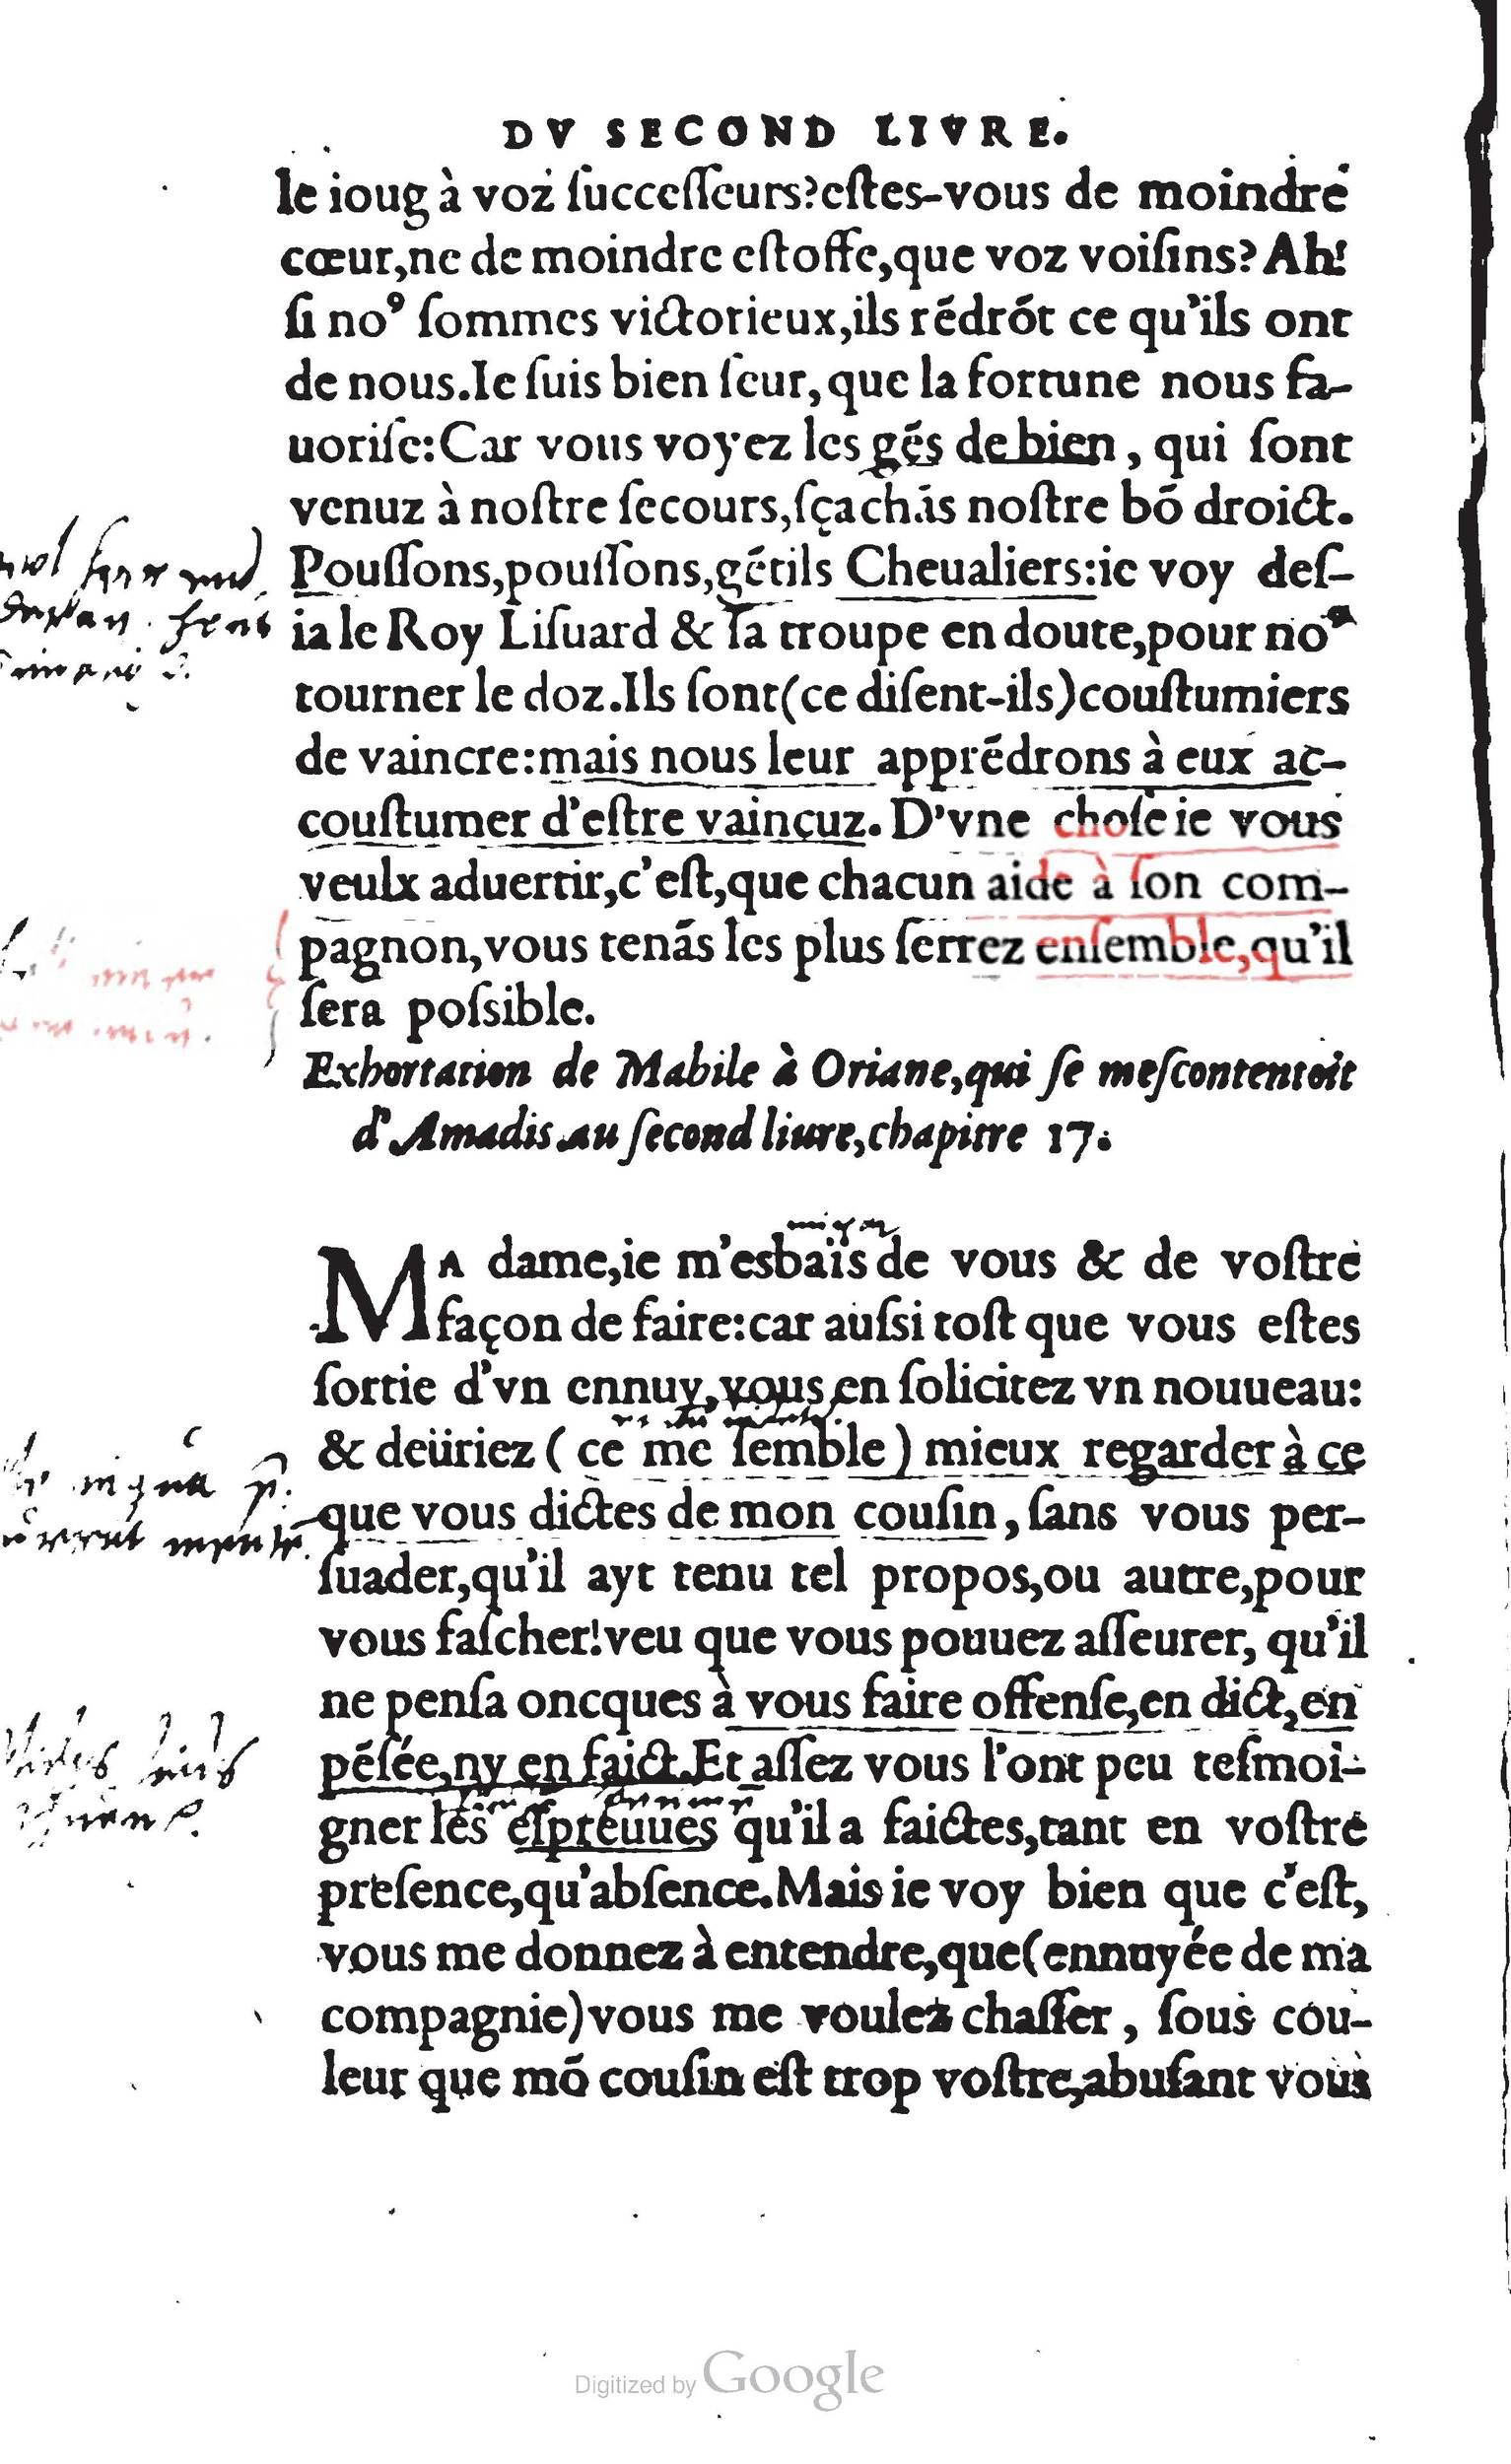 DV SECOND LIVRE.
le ioug à voz ſucceſſeurs?eſtes-vous de moindre
cœur,ne de moindre eſtoffe,que voz voiſins? Ah!
ſi noꝰ ſommes victorieux,ils rẽdrõt ce qu'ils ont
de nous.Ie ſuis bien ſeur, que la fortune nous fa-
uoriſe:Car vous voyez les gẽs de bien, qui ſont
venuz à noſtre ſecours,ſçachãs noſtre bõ droict.
Pouſſons,pouſſons,gẽtils Cheualiers:ie voy deſ-
ia le Roy Liſuard & ſa troupe en doute,pour noꝰ
tourner le doz.Ils ſont(ce diſent-ils)couſtumiers
de vaincre:mais nous leur apprẽdrons à eux ac-
couſtumer d'eſtre vaincuz. D'vne choſe ie vous
veulx aduertir,c'eſt,que chacun aide à ſon com-
pagnon,vous tenãs les plus ſerrez enſemble,qu'il
ſera poſsible.
Exhortation de Mabile à Oriane,qui ſe meſcontentoit
d'Amadis au ſecond liure,chapitre 17.
MA dame,ie m'esbaïs de vous & de voſtre
façon de faire:car auſsi toſt que vous eſtes
ſortie d'vn ennuy,vous en ſolicitez vn nouueau:
& deüriez ( ce me ſemble ) mieux regarder à ce
que vous dictes de mon couſin, ſans vous per-
ſuader,qu'il ayt tenu tel propos,ou autre,pour
vous faſcher!veu que vous pouuez aſſeurer, qu'il
ne penſa oncques à vous faire offenſe,en dict,en
pẽſée,ny en faict.Et aſſez vous l'ont peu teſmoi-
gner les eſpreuues qu'il a faictes,tant en voſtre
preſence,qu'abſence.Mais ie voy bien que c'eſt,
vous me donnez à entendre,que(ennuyée de ma
compagnie)vous me voulez chaſſer, ſous cou-
leur que mõ couſin eſt trop voſtre,abuſant vous
Digitized by Google